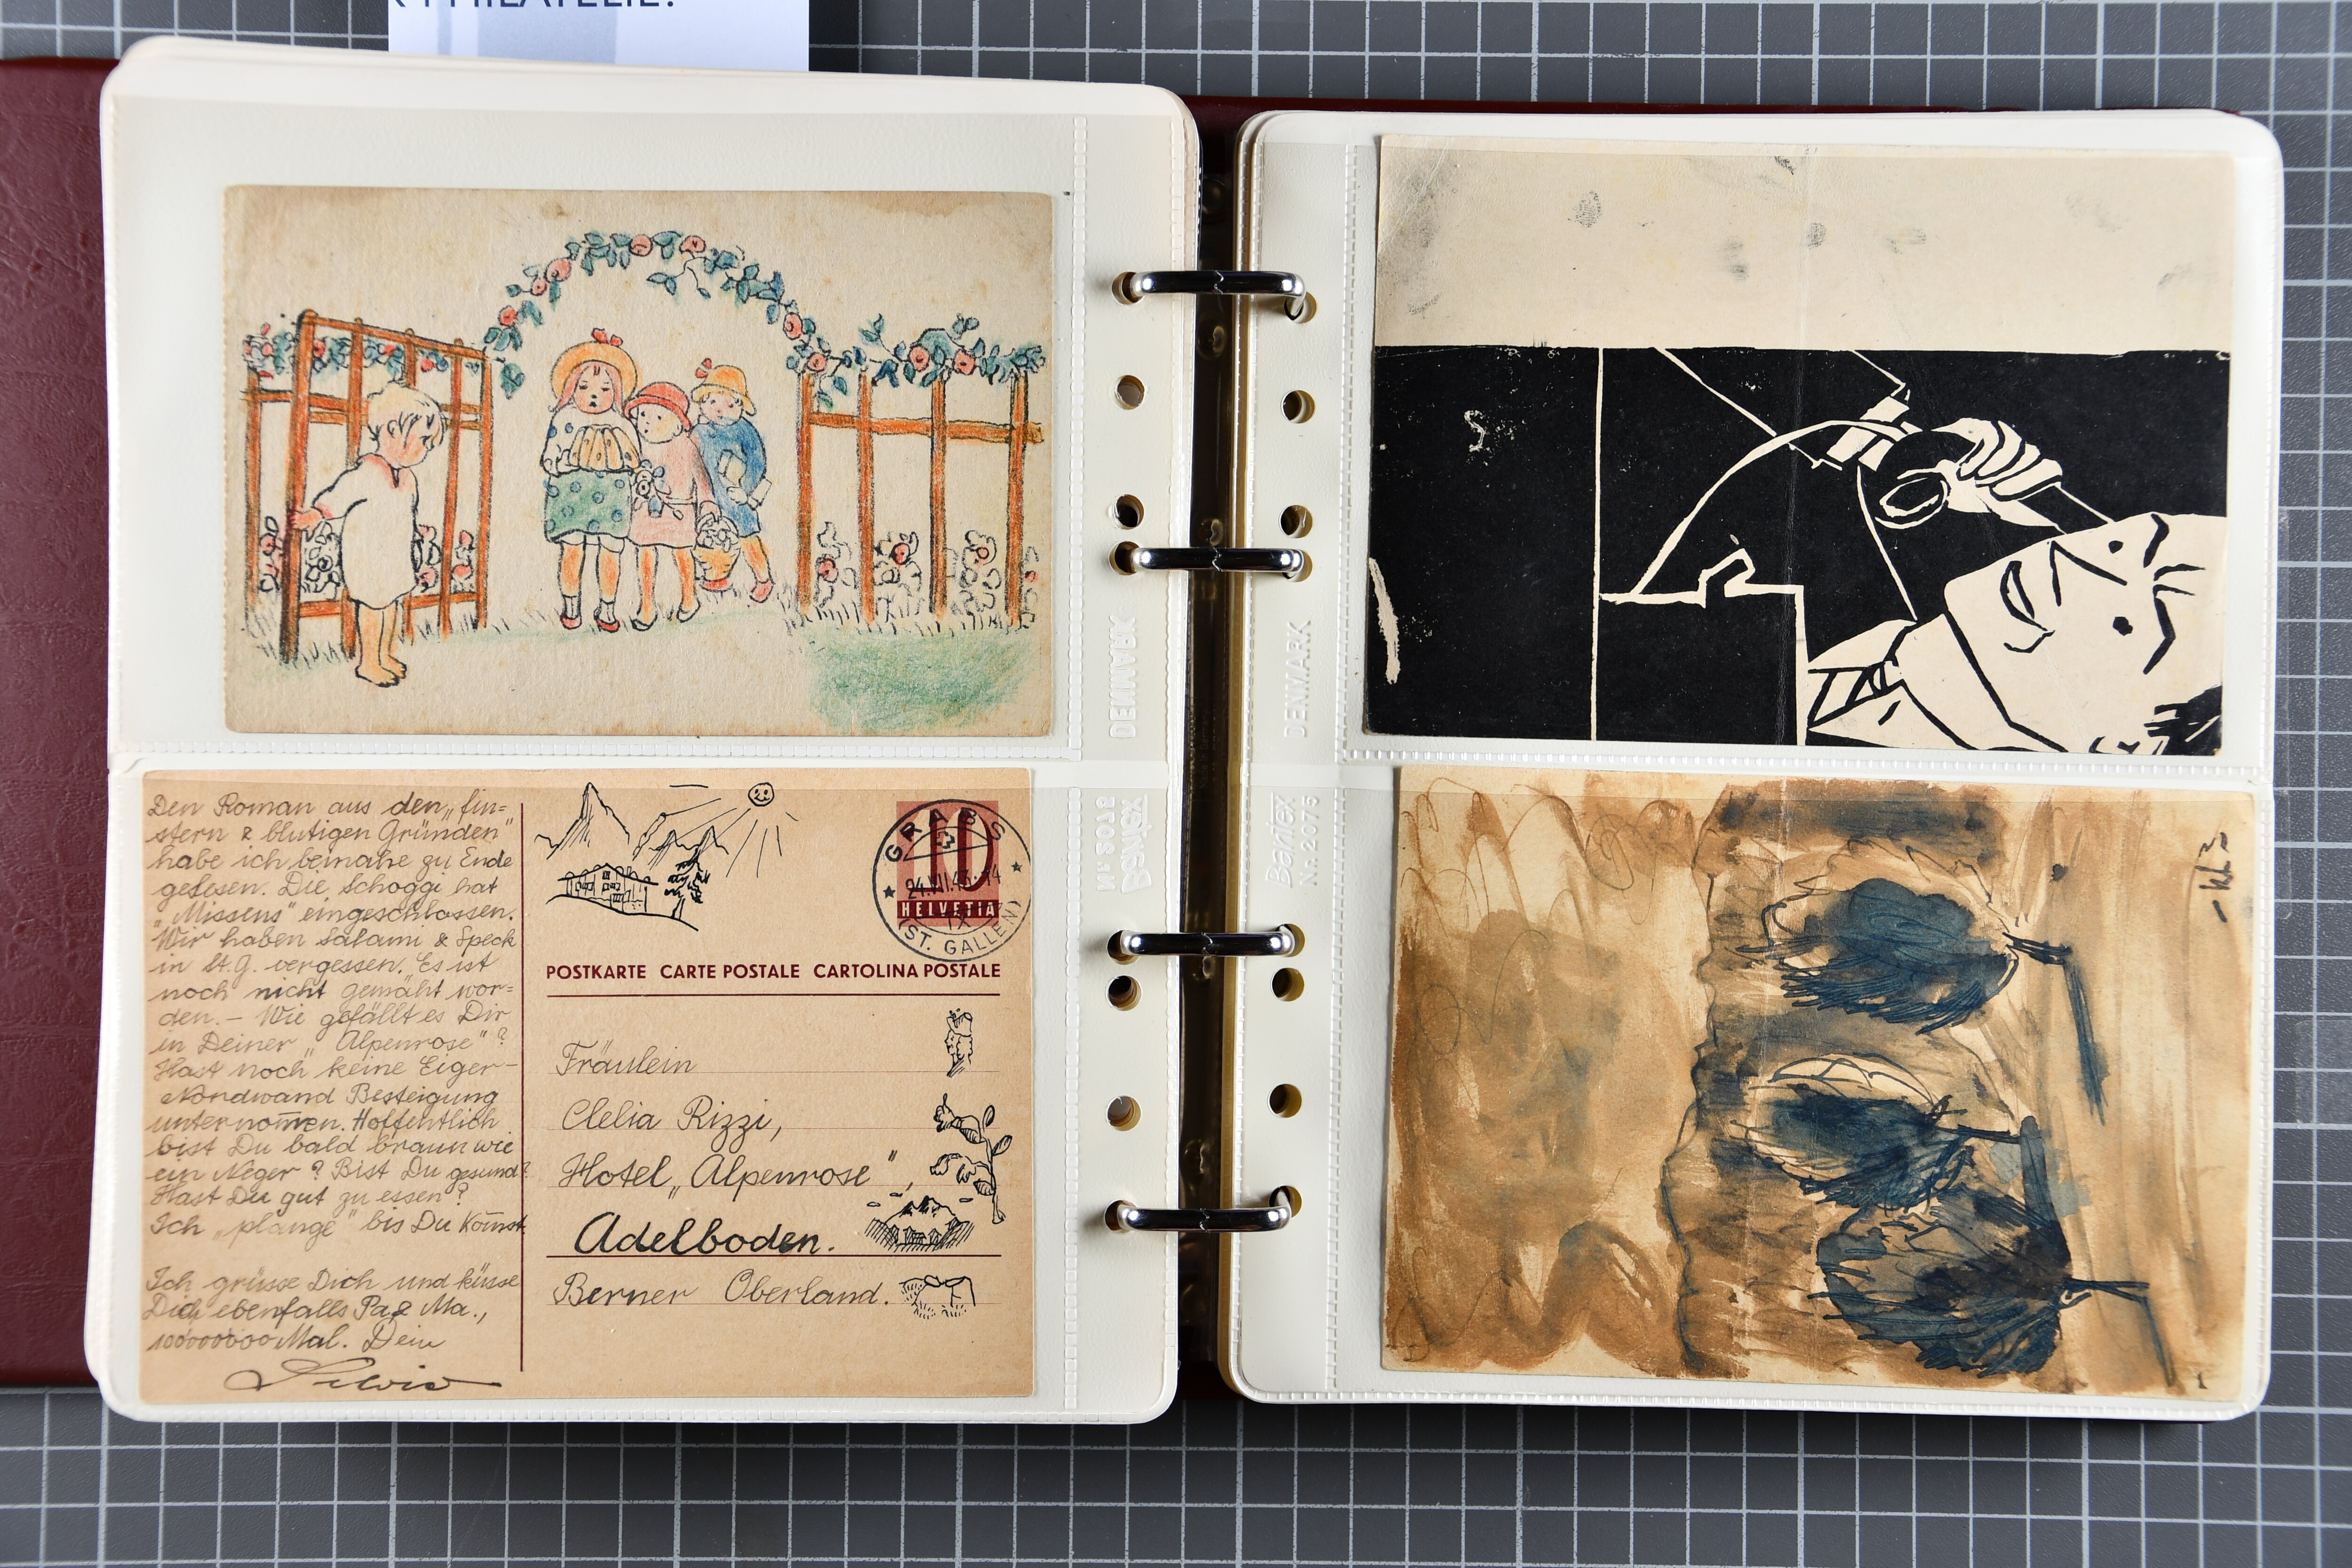 PHILATELIE.
Den Roman aus den „fin=
stern & blutigen Gründen"
habe ich beinahe zu Ende
gelesen. Die Schoggi hat
„Missens" eingeschlossen.
Wir haben Salami & Speck
in St.G. vergessen. Es ist
noch nicht gemäht wor=
den. – Wie gefällt es Dir
in Deiner „Alpenrose"?
Hast noch keine Eiger-
Nordwand Besteigung
unternom̄en. Hoffentlich
bist Du bald braun wie
ein Neger? Bist Du gesund?
Hast Du gut zu essen?
Ich „plange" bis Du kom̄st.
Ich grüsse Dich und küsse
Dich ebenfalls Pa & Ma.,
100000000 Mal. Dein
Silvio
GRABS
10
24.VII.43.-14
HELVETIA
(ST. GALLEN)
POSTKARTE CARTE POSTALE CARTOLINA POSTALE
Fräulein
Clelia Rizzi,
Hotel „Alpenrose",
Adelboden.
Berner Oberland.
DENMARK
Bantex
Nr. 2075
DENMARK
Bantex
Nr. 2075